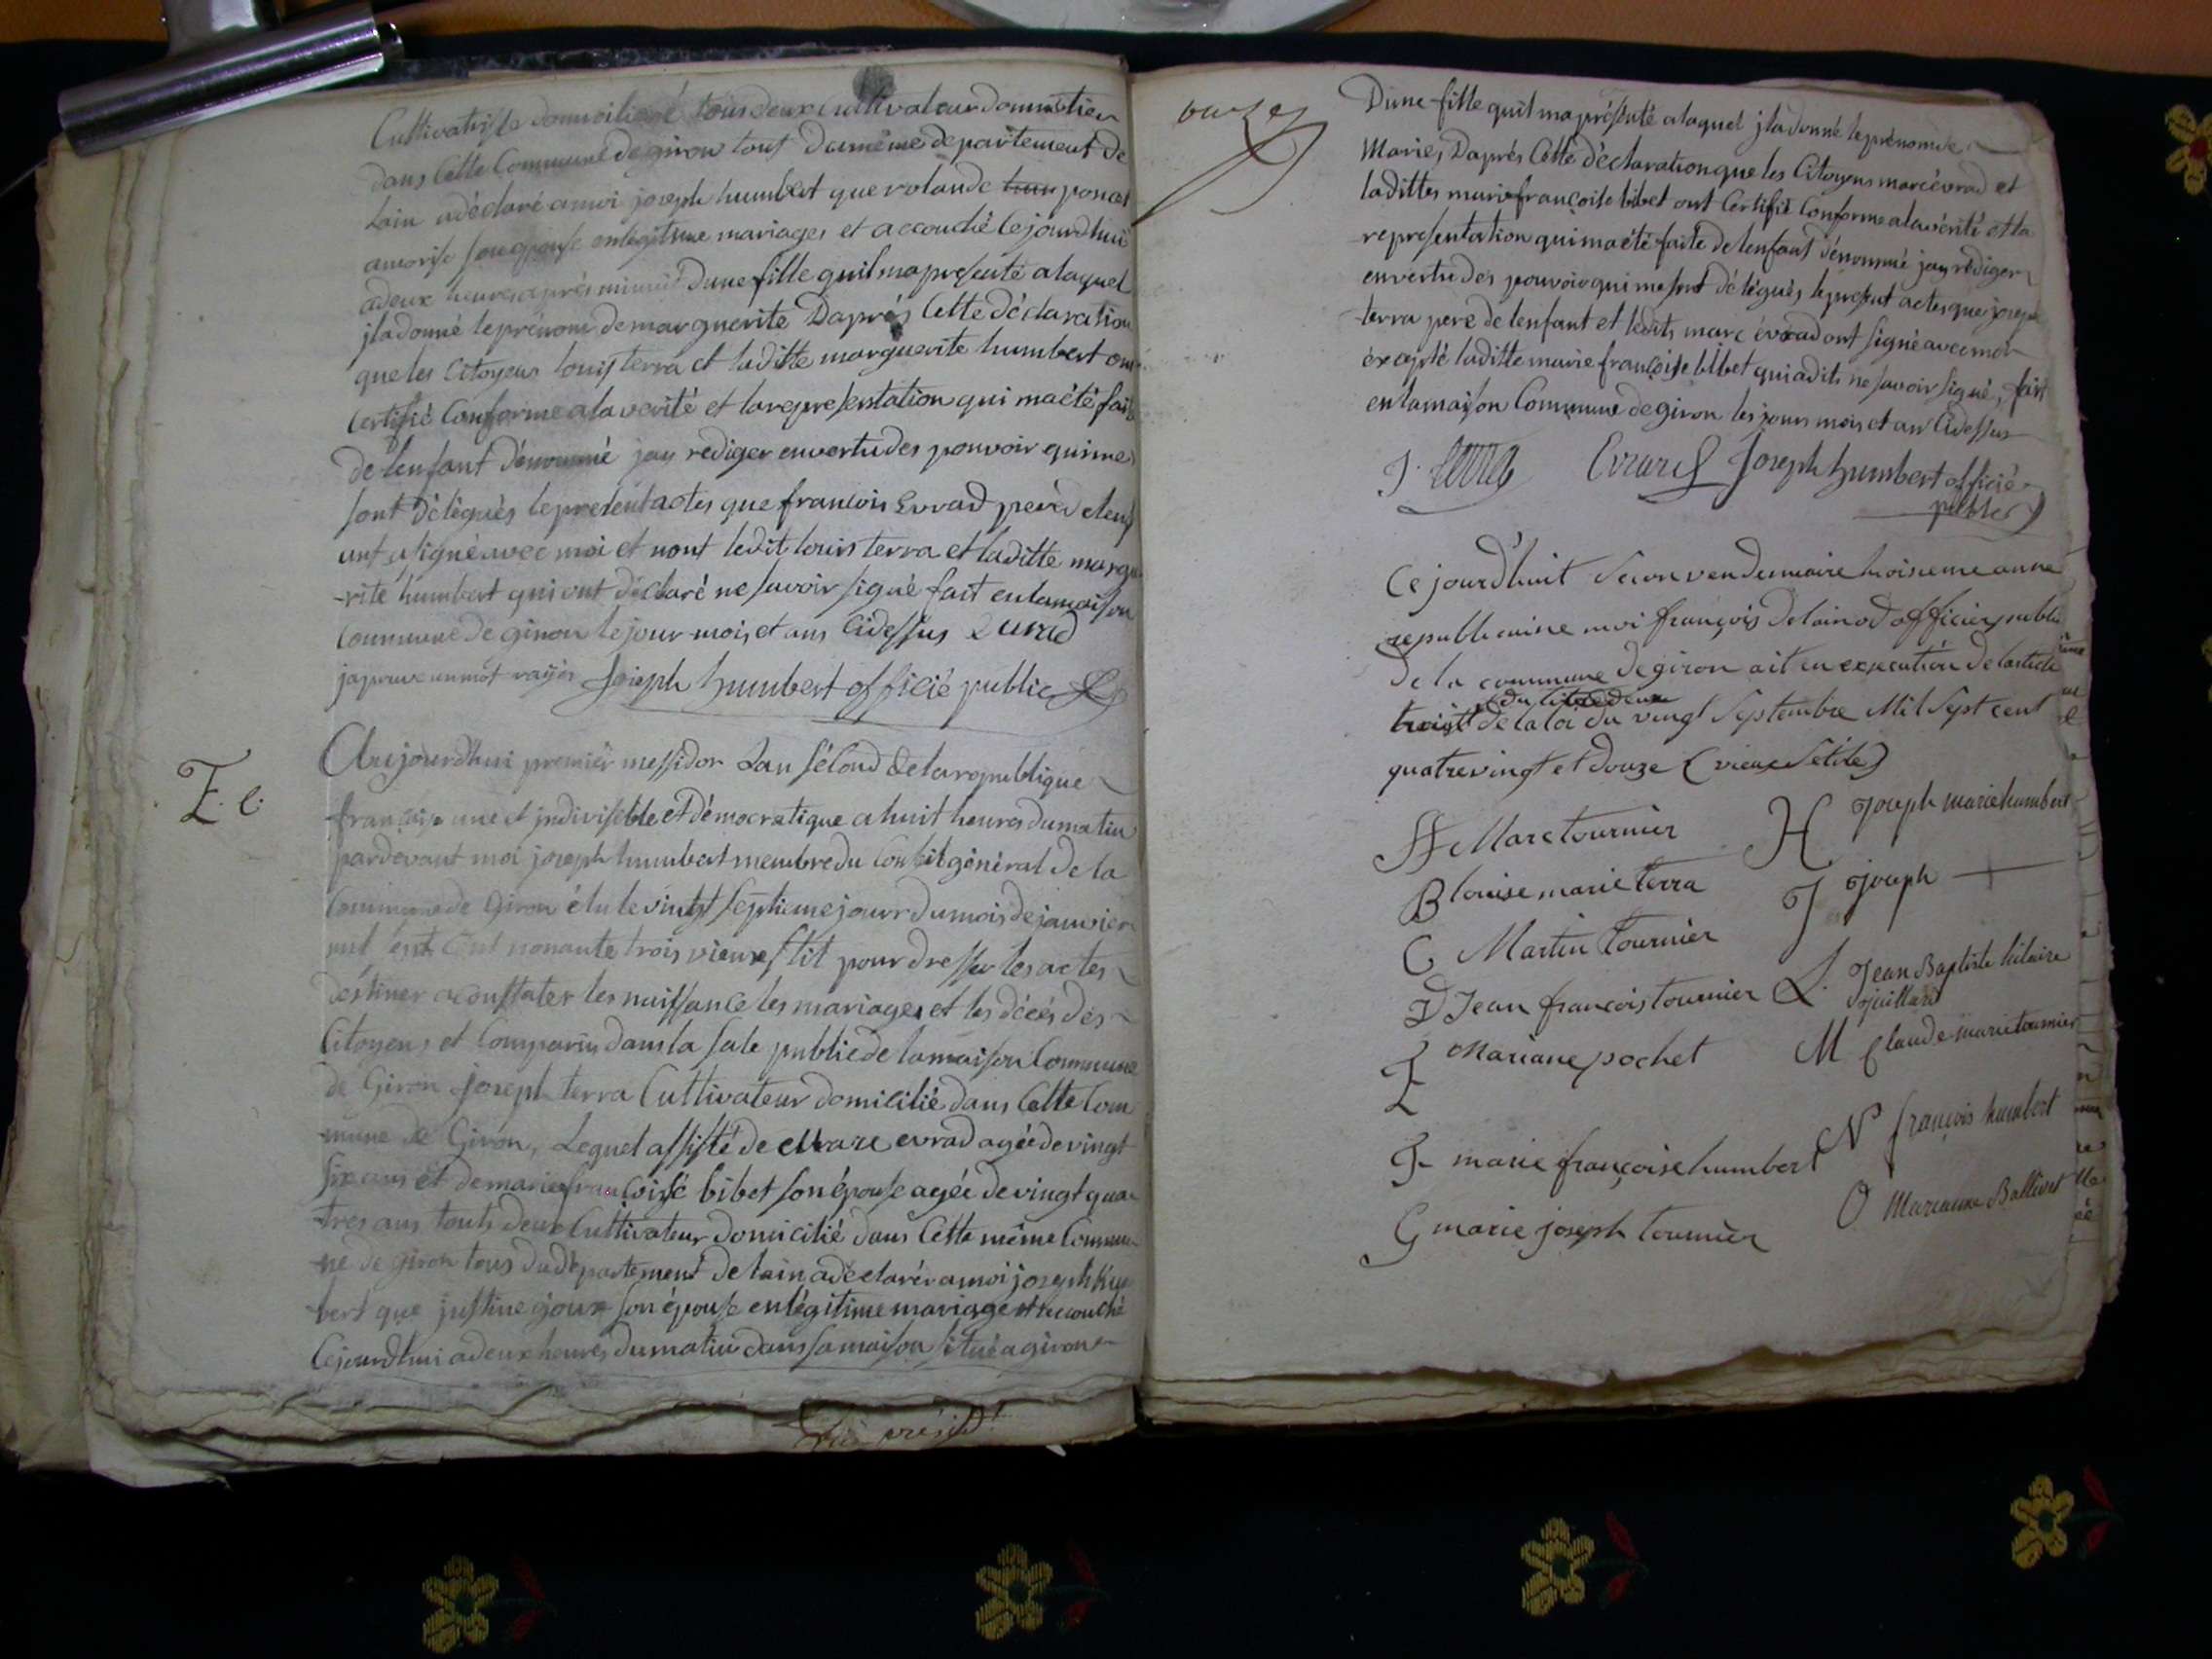 Cultivatrise domicilié tous deux cultivateur
dans Cette Commune de giron tout du même departement de
Lain adéclaré amoi joseph humbert que rolande poncet
son epouse enlégitime mariages et accouché Cejourdhui
adeux heures après minuit Dune fille quil mapresenté alaquel
jladonné leprénom demarguerite Daprés Cette déclaration
queles Citoyens louis terra et laditte marguerite humbert ont
Certifié Conforme ala verité et larepresentation qui maété faite
delenfant dénommé jay rediger envertu des pouvoir quime
sont délégués lepresent actes que francois Evrad pere delenf
ant asigné avec moi et nont ledit louis terra et laditte margu
-rite humbert qui ont déclaré ne savoir signé fait enlamaison
Commune de giron lejour mois et ans Cidessus Evrad
japrouve unmot rayés Joseph humbert officié public
E. e.
Aujourdhui premier messidor Lan second delarepublique
française une et jndivisible et démocratique ahuit heures dumatin
pardevant moi joseph humbert membre du Conseil général de la
Commune de Giron élu le vingt septieme jour dumois dejanvier
mil sept Cent nonante trois vieux stit pour dresser les actes
destiner aconstater les naissance les mariages et les décés des
Citoyens et Comparus dans la sale publicde lamaison Commune
de Giron Joseph terra Cultivateur domicilié dans Cette Com
mune de Giron, Lequel assisté de Marc evrad agée de vingt
six ans et demarie françoise bibet son épouse agée de vingt qua
tres ans touts deux Cultivateur domicilié dans Cette même Commu
ne de giron tous dudepartement delain adeclarér amoi joseph hum
bert que justine son épouse enlégitime mariage et accouché
Cejourdhui adeux heures dumatin dans samaison situé agiron
onzes
Dune fille quil maprésenté alaquel jladonné leprénom de
Maries Daprés Cette déclaration que les Citoyens marc évrad et
laditte marie françoise bibet ont Certifié Conforme alavérité et la
representation qui maété faite delenfant dénommé jay rédiger
envertu des pouvoir qui me sont délégués lepresent actes que joseph
terra pere de lenfant et ledits marc évrad ont signé avec moi
éxcepté laditte marie françoise bibet qui adits ne savoir signé, fait
enlamaison Commune de giron les jours mois et an Cidessus
J. terra Evrard Joseph humbert officié
public
Ce jourd'huit vendemiaire troisieme anné
republicaine moi françois Delainod officier public
de la commune de giron ait en execution de larticle
du titre deux
de la loi du vingt Septembre Mil Sept cent
quatrevingt et douze (vieux Stile)
A Marc tournier
H Joseph marie humbert
B louise marie terra
J joseph
C Martin tournier
D Jean françois tournier
L. Jean Baptiste hilaire
juillard
E Mariane pochet
M Claude marie tournier
F marie françoise humbert
N françois humbert
G marie joseph tournier
O Marianne Ballivet